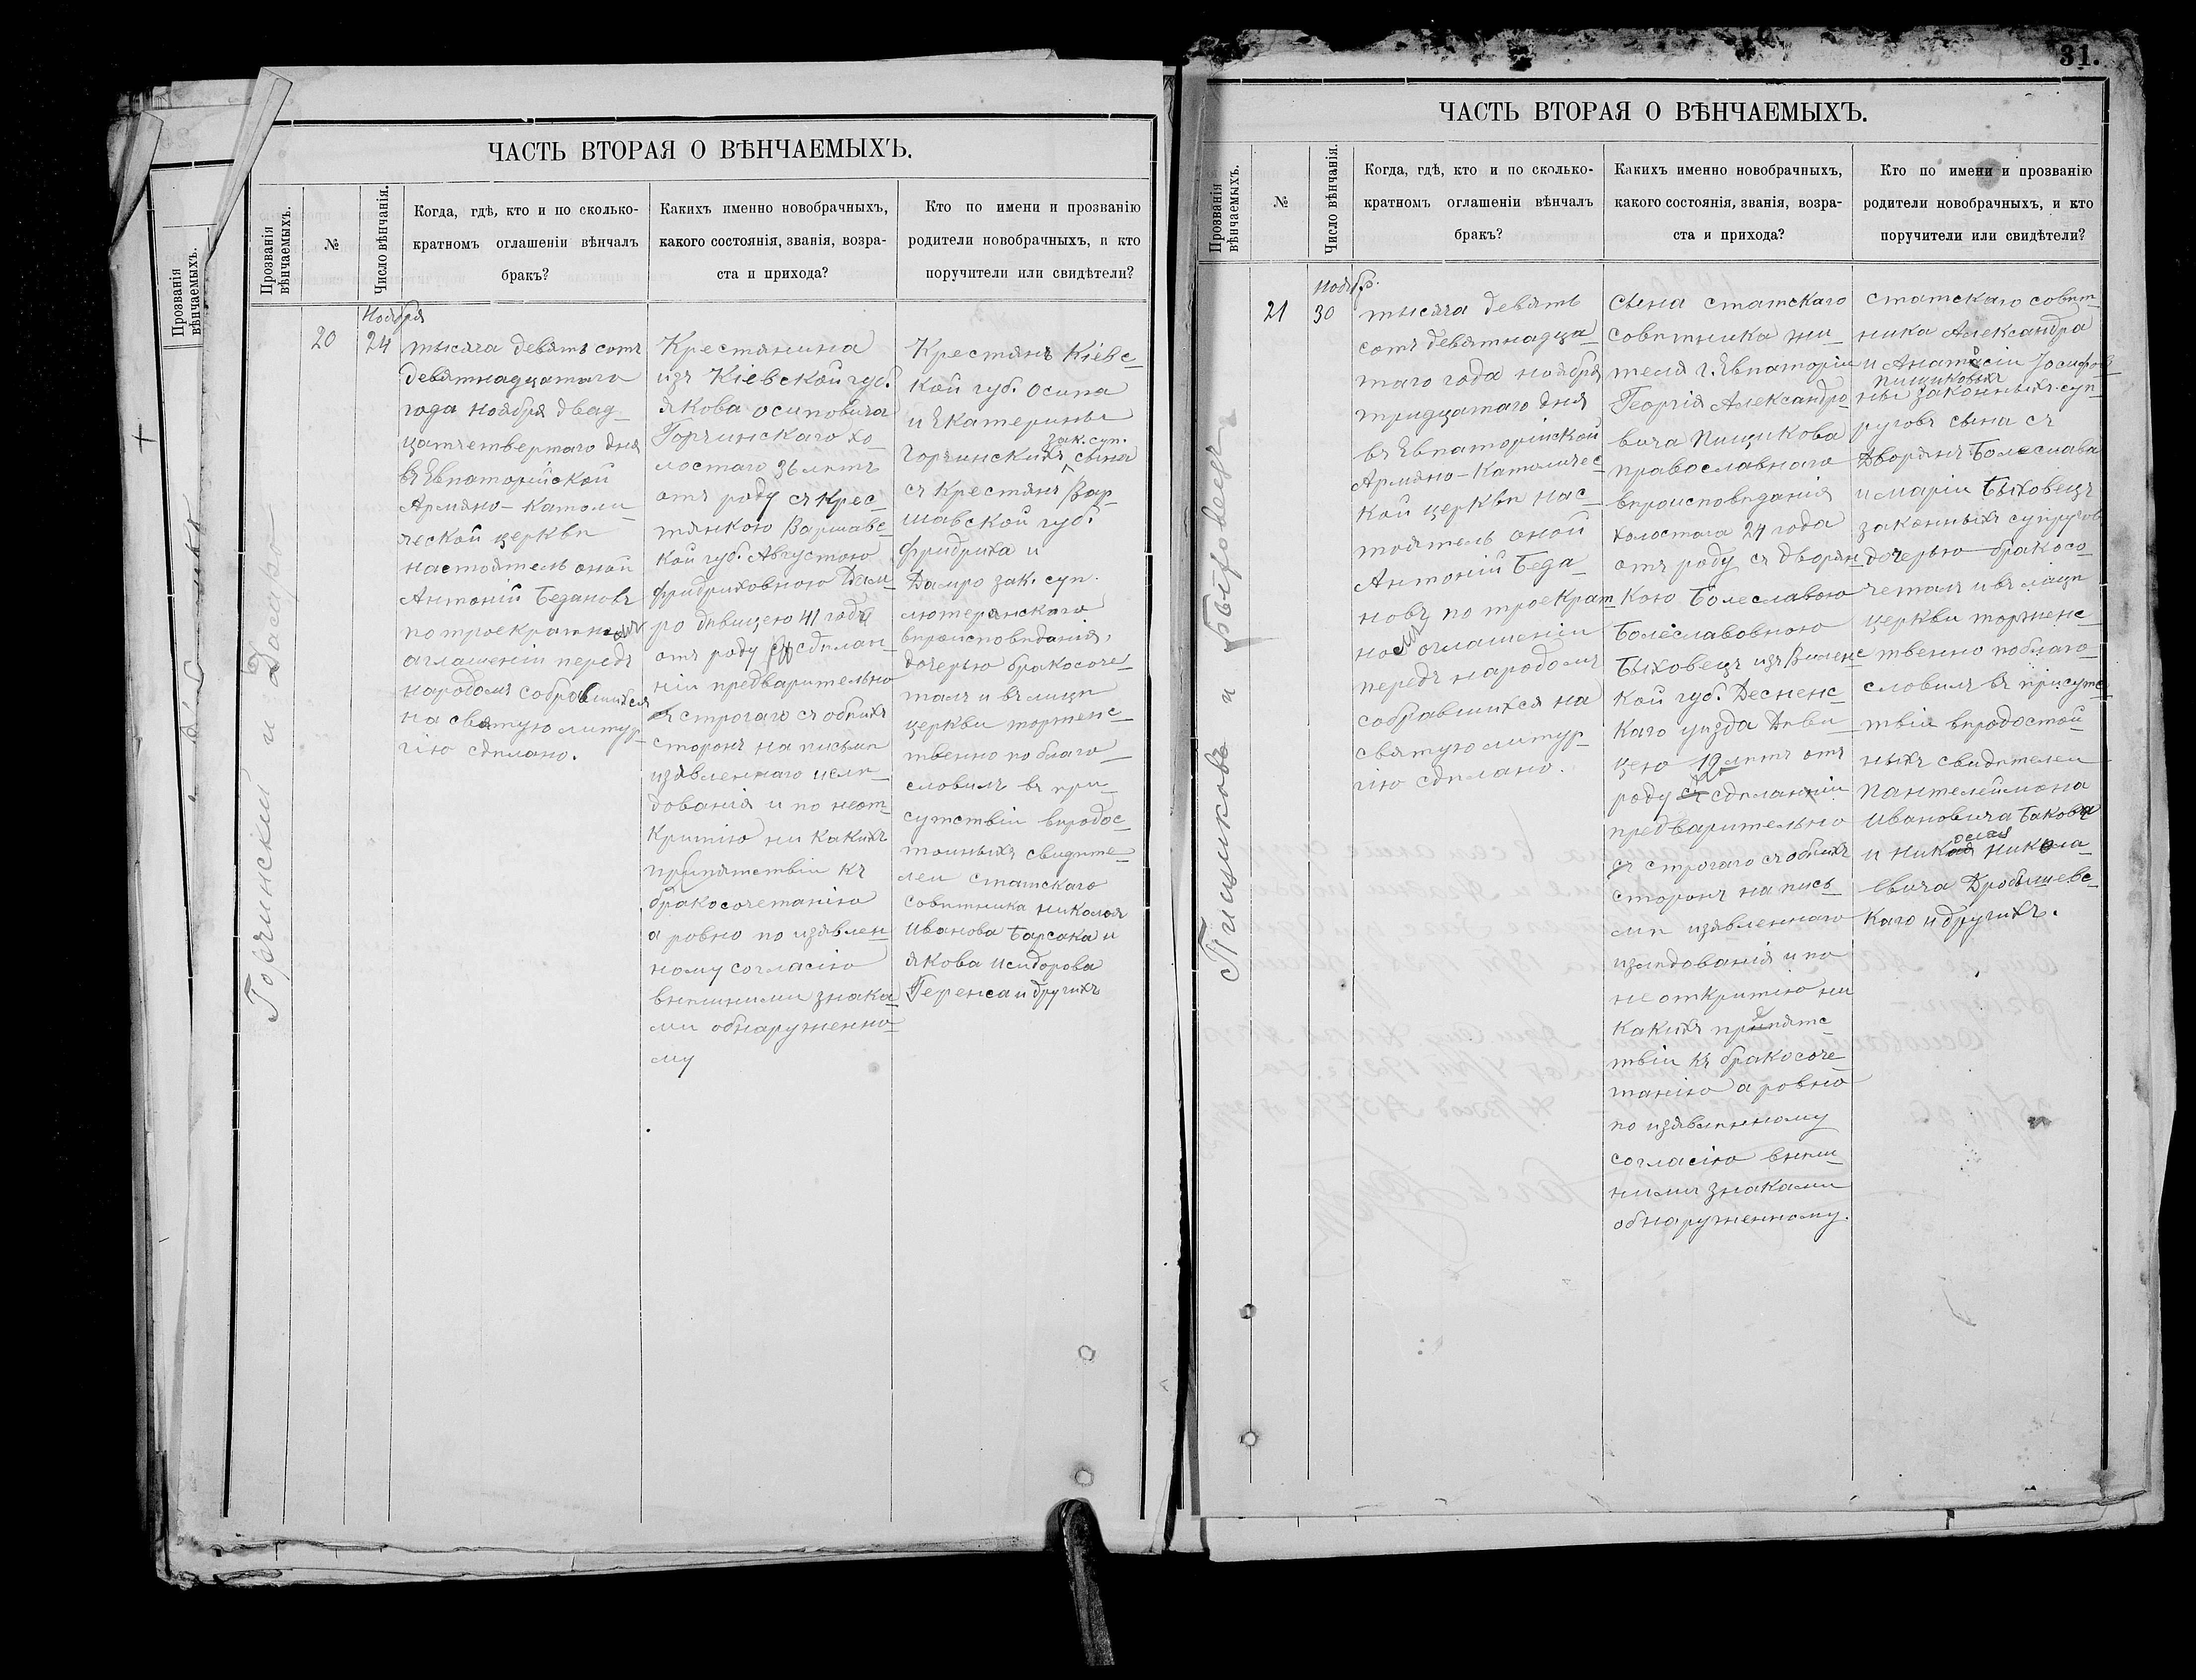 ЧАСТЬ ВТОРАЯ О ВѢНЧАЕМЫХЪ.
Прозванія вѣнчаемыхъ.
Прозванія вѣнчаемыхъ.
№
Число вѣнчанія.
Когда, гдѣ, кто и по сколько-
кратномъ оглашеніи вѣнчалъ
бракъ?
Какихъ именно новобрачныхъ,
какого состоянія, званія, возра-
ста и прихода?
Кто по имени и прозванію
родители новобрачныхъ, и кто
поручители или свидѣтели?
Горчинскій и
20
Ноября
24
тысяча девять сотъ
девятнадцатаго
года ноября двад-
цатчетвертого дня
въ Евпаторійской
Армяно-Католи-
ческой церкви
настоятель оной
Антоній Бедановъ
по троекратномъ
оглашеніи передъ
народомъ собравшихся
на святую литур-
гію сдѣлано.
Крестянина
изъ Кіевской губ.
Якова Осиповича
Горчинскаго хо
лостаго 36 лѣтъ
отъ роду съ крес-
тянкою Варшавс-
кой губ. Августою
Фридриховною Дам-
ро дѣвицею 41 года
отъ роду сдѣлан-
ніи предварительно
строгаго съ обѣихъ
сторонъ на письмѣ
изявленнагоислѣ-
дованія и по неот-
критію ни какихъ
припятствіи къ
бракосочетанію
а ровно по изявлен-
ному согласію
внѣшними знака-
ми обнаруженно-
му
Крестянъ Кіевс-
кой губ. Осипа
и Екатерины
зак. суп.
Горчинскихъ сына
съ крестянъ Вар-
шавской губ.
Фридриха и
Дамро зак. суп.
лютеранскаго
вѣроисповѣданія,
дочерью бракосоче-
талъ и въ лицѣ
церкви торженс-
твенно поблаго-
словилъ въ при-
сутствіи вѣродос-
тоиныхъ свидѣте-
леи статскаго
совѣтника Николая
Иванова Барсака и
Якова Исидорова
Геренса и другихъ
31.
ЧАСТЬ ВТОРАЯ О ВѢНЧАЕМЫХЪ.
Прозванія вѣнчаемыхъ.
№
Число вѣнчанія.
Когда, гдѣ, кто и по сколько-
кратномъ оглашеніи вѣнчалъ
бракъ?
Какихъ именно новобрачныхъ,
какого состоянія, званія, возра-
ста и прихода?
Кто по имени и прозванію
родители новобрачныхъ, и кто
поручители или свидѣтели?
Пищиковъ и Быховецъ
21
Ноябр.
30
тысяча девять
сотъ девятнадца-
таго года ноября
тридцатаго дня
въ Евпаторійской
Армяно-Католичес-
кой церкви нас-
тоятель оной
Антоній Беда-
новъ по троекрат-
номъ оглашеніи
передъ народомъ
собравшихся на
святую литур-
гію сдѣлано.
Сына статскаго
совѣтника жи-
теля г. Евпаторіи
Георгія Александро-
вича Пищикова
православнаго
вѣроисповѣданія
холостаго 24 года
отъ роду съ дворян-
кою Болеславою
Болеславовною
Быховецъ изъ Виленс-
кой губ. Десненс-
каго уѣзда Дѣви-
цею 19 лѣтъ отъ
роду сдѣланніи
предварительно
строгаго съ обѣихъ
сторонъ на пись-
мѣ изявленнаго
излѣдованія и по
не откритію ни
какихъ препятс-
твіи къ бракосоче-
танію а ровно
по изявлѣнному
согласію внѣш-
ними знаками
обнаруженному.
статскаго совѣт-
ника Александра
и Анатасіи Іосифов-
Пищиковыхъ
ны законныхъ суп-
руговъ сына съ
Дворянъ Болеслава
и Маріи Быховецъ
законныхъ супруговъ
дочерью бракосо-
четалъ и въ лицѣ
церкви торженс-
твенно поблаго-
словилъ въ присутс-
твіи вѣродостой-
ныхъ свидѣтелеи
Пантелеймона
Ивановича Бакова
и Николая Никола-
евича Дробышевс-
каго и другихъ.